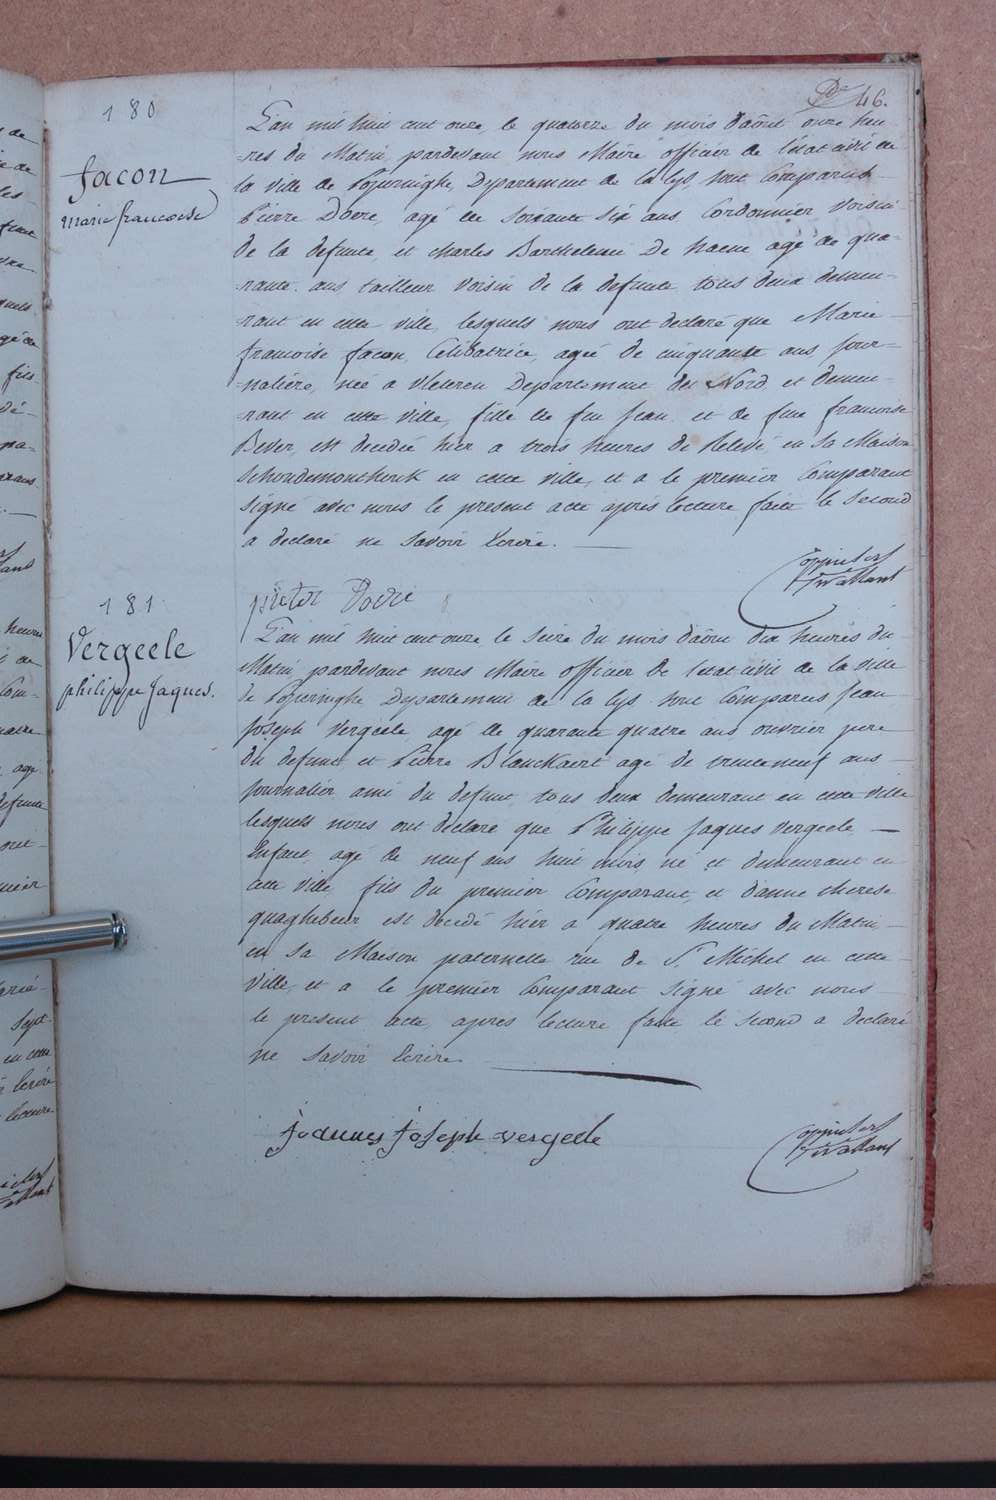 46.
180
facon
Marie francoise
L'an mil huit cent onze, le quatorze du mois d'aôut onze heu-
=res du Matin, pardevant nous Maire officier de l'état civil de
la ville de Poperinghe, Departement de la lys, sont Comparus
Pierre Dovre, agé de soixante six ans Cordonnier voisin
de la defunte, et Charles Barthelemi De haene agé de qua-
=rante ans tailleur voisin de la defunte tous deux demeu-
=rant en cette ville, lesquels nous ont declaré que Marie
francoise facon, Celibatrice, agée de cinquante ans jour-
=naliére, née a vleteren Departement du Nord et demeu-
=rant en cette ville, fille de feu jean et de feue francoise
Bever, est decedée hier a trois heures de Relevé, en sa Maison
en cette ville, et a le premier Comparant
signé avec nous le present acte après lecture faite le second
a declaré ne savoir Ecrire.
pieter Dovre
181
Vergeele
philippe Jaques.
L'an mil huit cent onze le seize du mois d'aôut dix heures du
Matin pardevant nous Maire officier de l'état civil de la ville
de Poperinghe Departement de la lys sont Comparus Jean
Joseph Vergeele, agé de quarante quatre ans ouvrier pere
du defunt et Pierre Blanckaert agé de trenteneuf ans
Journalier ami du defunt, tous deux demeurant en cette ville
lesquels nous ont declaré que Philippe Jaques Vergeele
Enfant, agé de neuf ans huit mois, né et demeurant en
cette ville fils du premier Comparant, et d'anne therese
quaghebeur est decedé hier a quatre heures du Matin,
en sa Maison paternelle rue de St. Michel en cette
ville, et a le premier Comparant signé avec nous
le present acte, après lecture faite le second a declaré
ne savoir Ecrire.
Joannes Joseph vergeele